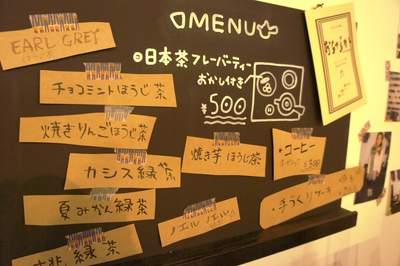 MENU
日本茶フレーバーティー
おかし付き
¥500
EARL GREY
チョコミントほうじ茶
焼きりんごほうじ茶
カシス緑茶
夏みかん緑茶
緑茶
焼き芋ほうじ茶
ノエル ノエル
・コーヒー
・手づくりケーキ